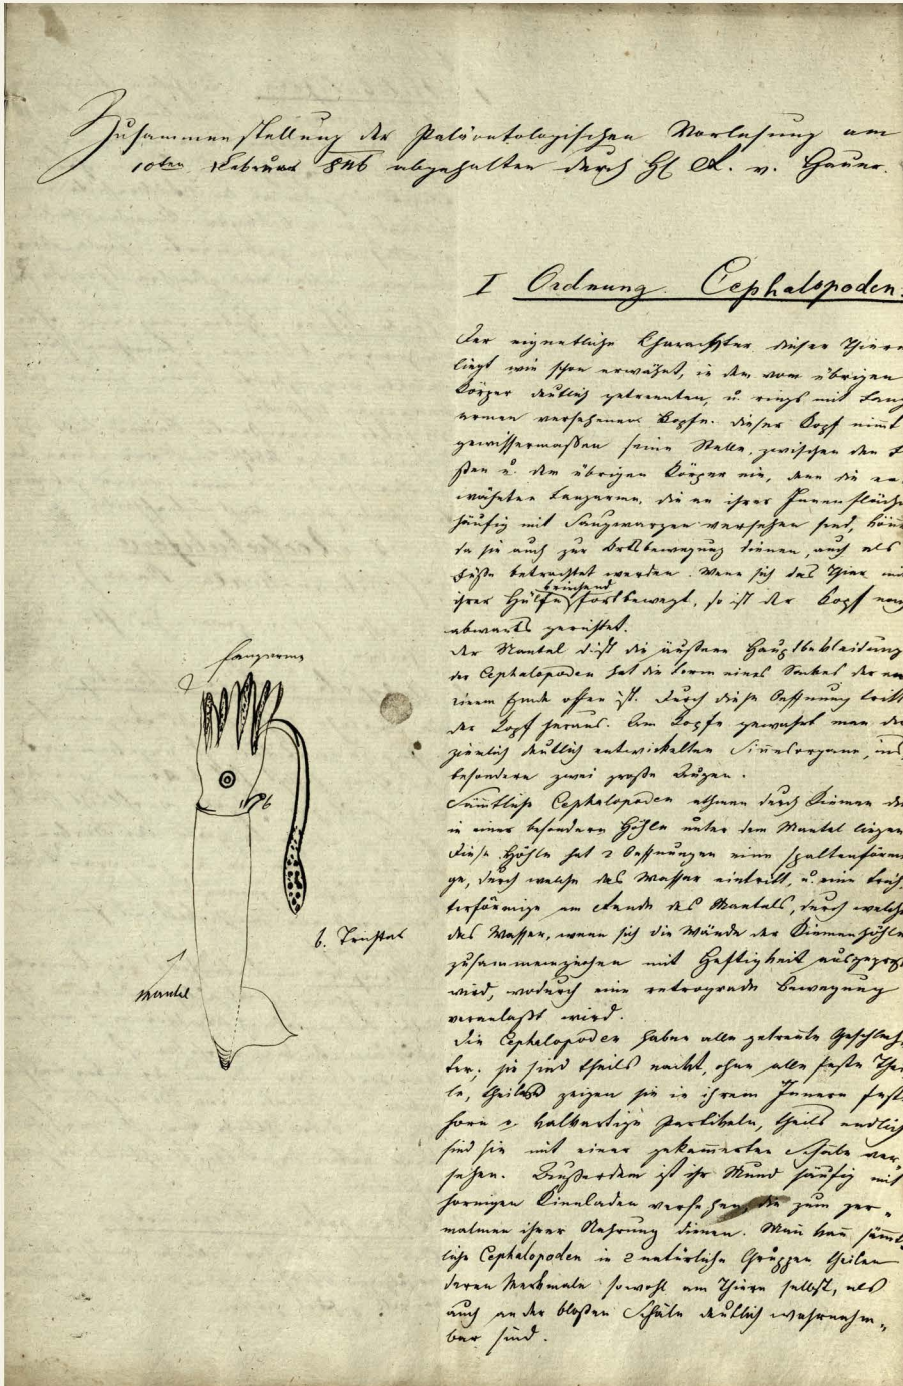 Zusammenstellung der Paläontologischen Vorlesung am
10ten Februar 846 abgehalten durch H v. Hauer.
I Ordnung. Cephalopoden.
Der eigentliche Charackter dieser Thiere
liegt wie schon erwähnt, in dem vom übrigen
Körper deutlich getrennten, u. rings mit Fang
armen versehenen Kopfe. dieser Kopf nimmt
gewissermaßen seine Stelle, zwischen den F
ßen u. dem übrigen Körper ein, denn die er
wähnten Fangarme, die an ihrer Innenfläche
häufig mit Saugwarzen versehen sind, könn
da sie auch zur Ortsbewegung dienen, auch als
Füße betrachtet werden. Wenn sich das Thier mit
kriechend
ihrer Hülfe fortbewegt, so ist der Kopf nach
abwärts gerichtet.
Der Mantel die äußere Hauptbekleidung
der Cephalopoden hat die Form eines Sackes der an
einem Ende offen ist. Durch diese Oeffnung tritt
der Kopf heraus. Am Kopfe gewahrt man die
ziemlich deutlich entwickelten Sinnesorgane, ins
besondere zwei große Augen.
Sämtliche Cephalopoden athmen durch Kiemen die
in einer besondern Höhle unter dem Mantel liegen
Diese Höhle hat 2 Oeffnungen eine spaltenförmi
ge, durch welche das Wasser eintritt, u. eine trich
terförmige am Ende des Mantels, durch welche
das Wasser, wenn sich die Wände der Kiemenhöhle
zusammenziehen mit Heftigkeit ausgepreßt
wird, wodurch eine retrograde Bewegung
veranlaßt wird.
Die Cephalopoden haben alle getrennte Geschlech
ter; sie sind theils nackt, ohne alle feste Thei
le, theils zeigen sie in ihrem Innern feste
horn u. kalkartige Partikeln, theils endlich
sind sie mit einer gekammerten Schale ver
sehen. Außerdem ist ihr Mund häufig mit
hornigen Kinnladen versehen, die zum zer=
malmen ihrer Nahrung dienen. Man kann sämmt
liche Cephalopoden in 2 natürliche Gruppen theilen
deren Merkmale sowohl am Thiere selbst, als
auch an der bloßen Schale deutlich wahrnehm=
bar sind.
Fangarme
b
b. Trichter
Mantel